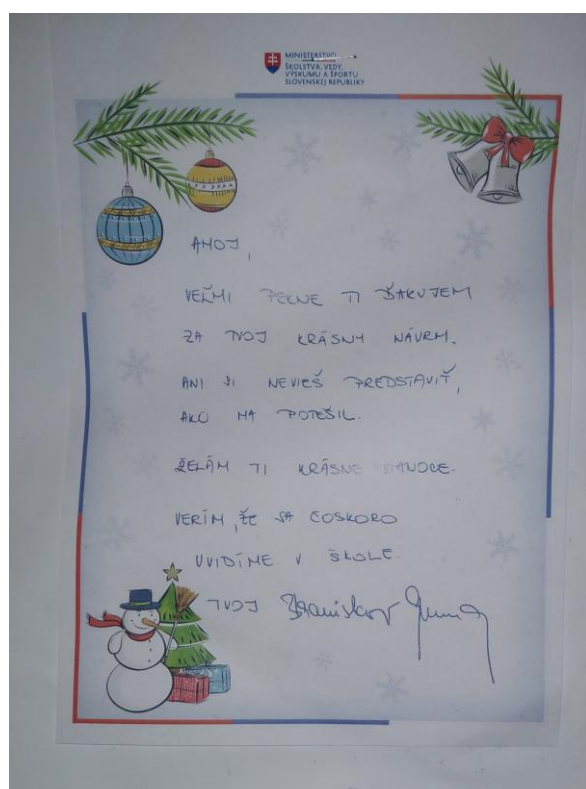 MINISTERSTVO
ŠKOLSTVA, VEDY,
VÝSKUMU A ŠPORTU
SLOVENSKEJ REPUBLIKY
AHOJ,
VEĽMI PEKNE TI ĎAKUJEM
ZA TVOJ KRÁSNY NÁVRH.
ANI SI NEVIEŠ PREDSTAVIŤ,
AKO MA POTEŠIL.
ŽELÁM TI KRÁSNE VIANOCE.
VERÍM, ŽE SA COSKORO
UVIDÍME V ŠKOLE.
TVOJ Branislav